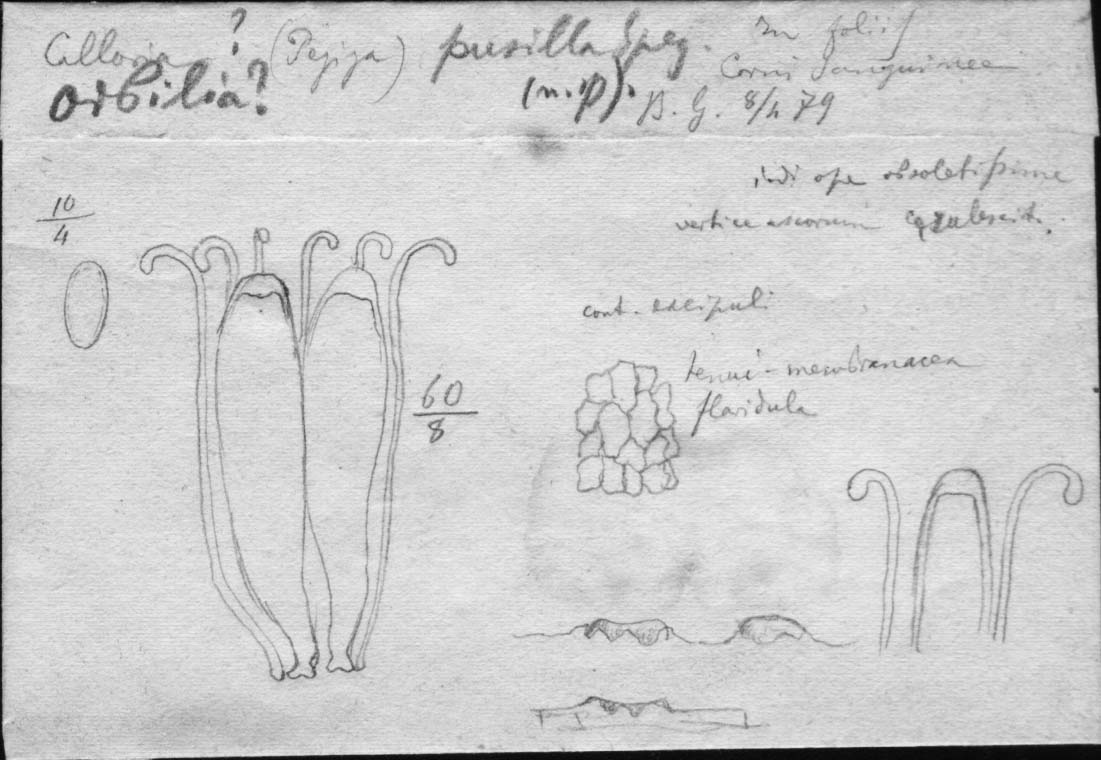 Calloria ? (Peziza) pusilla Speg. In foliis
Orbilia? (n. p). Corni sanguineae
B. G. 8/4 79
iodi ope obsoletissime
vertice ascorum
10
4
cont. excipuli
tenui-membranacea
flavidula
60
8